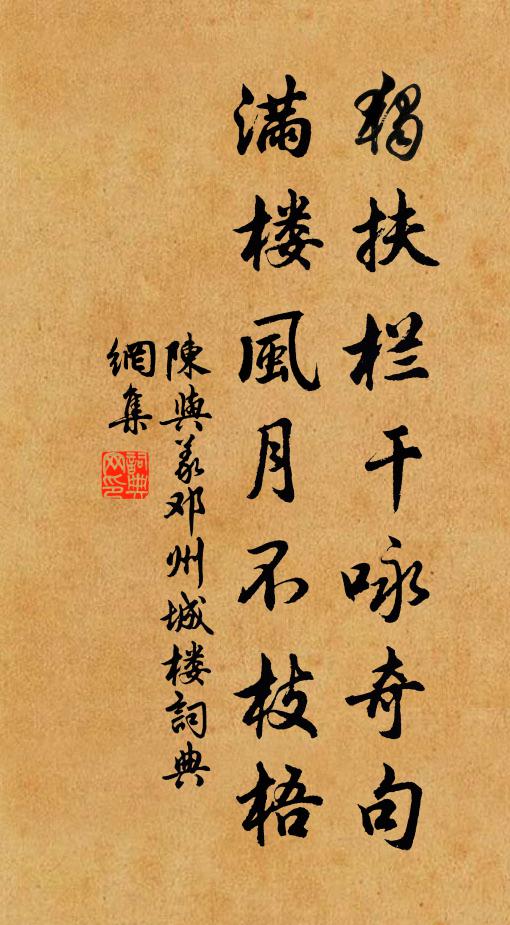 獨扶栏干咏奇句
满楼風月不枝梧
陳與義邓州城楼詞典
網集
詞典
网印